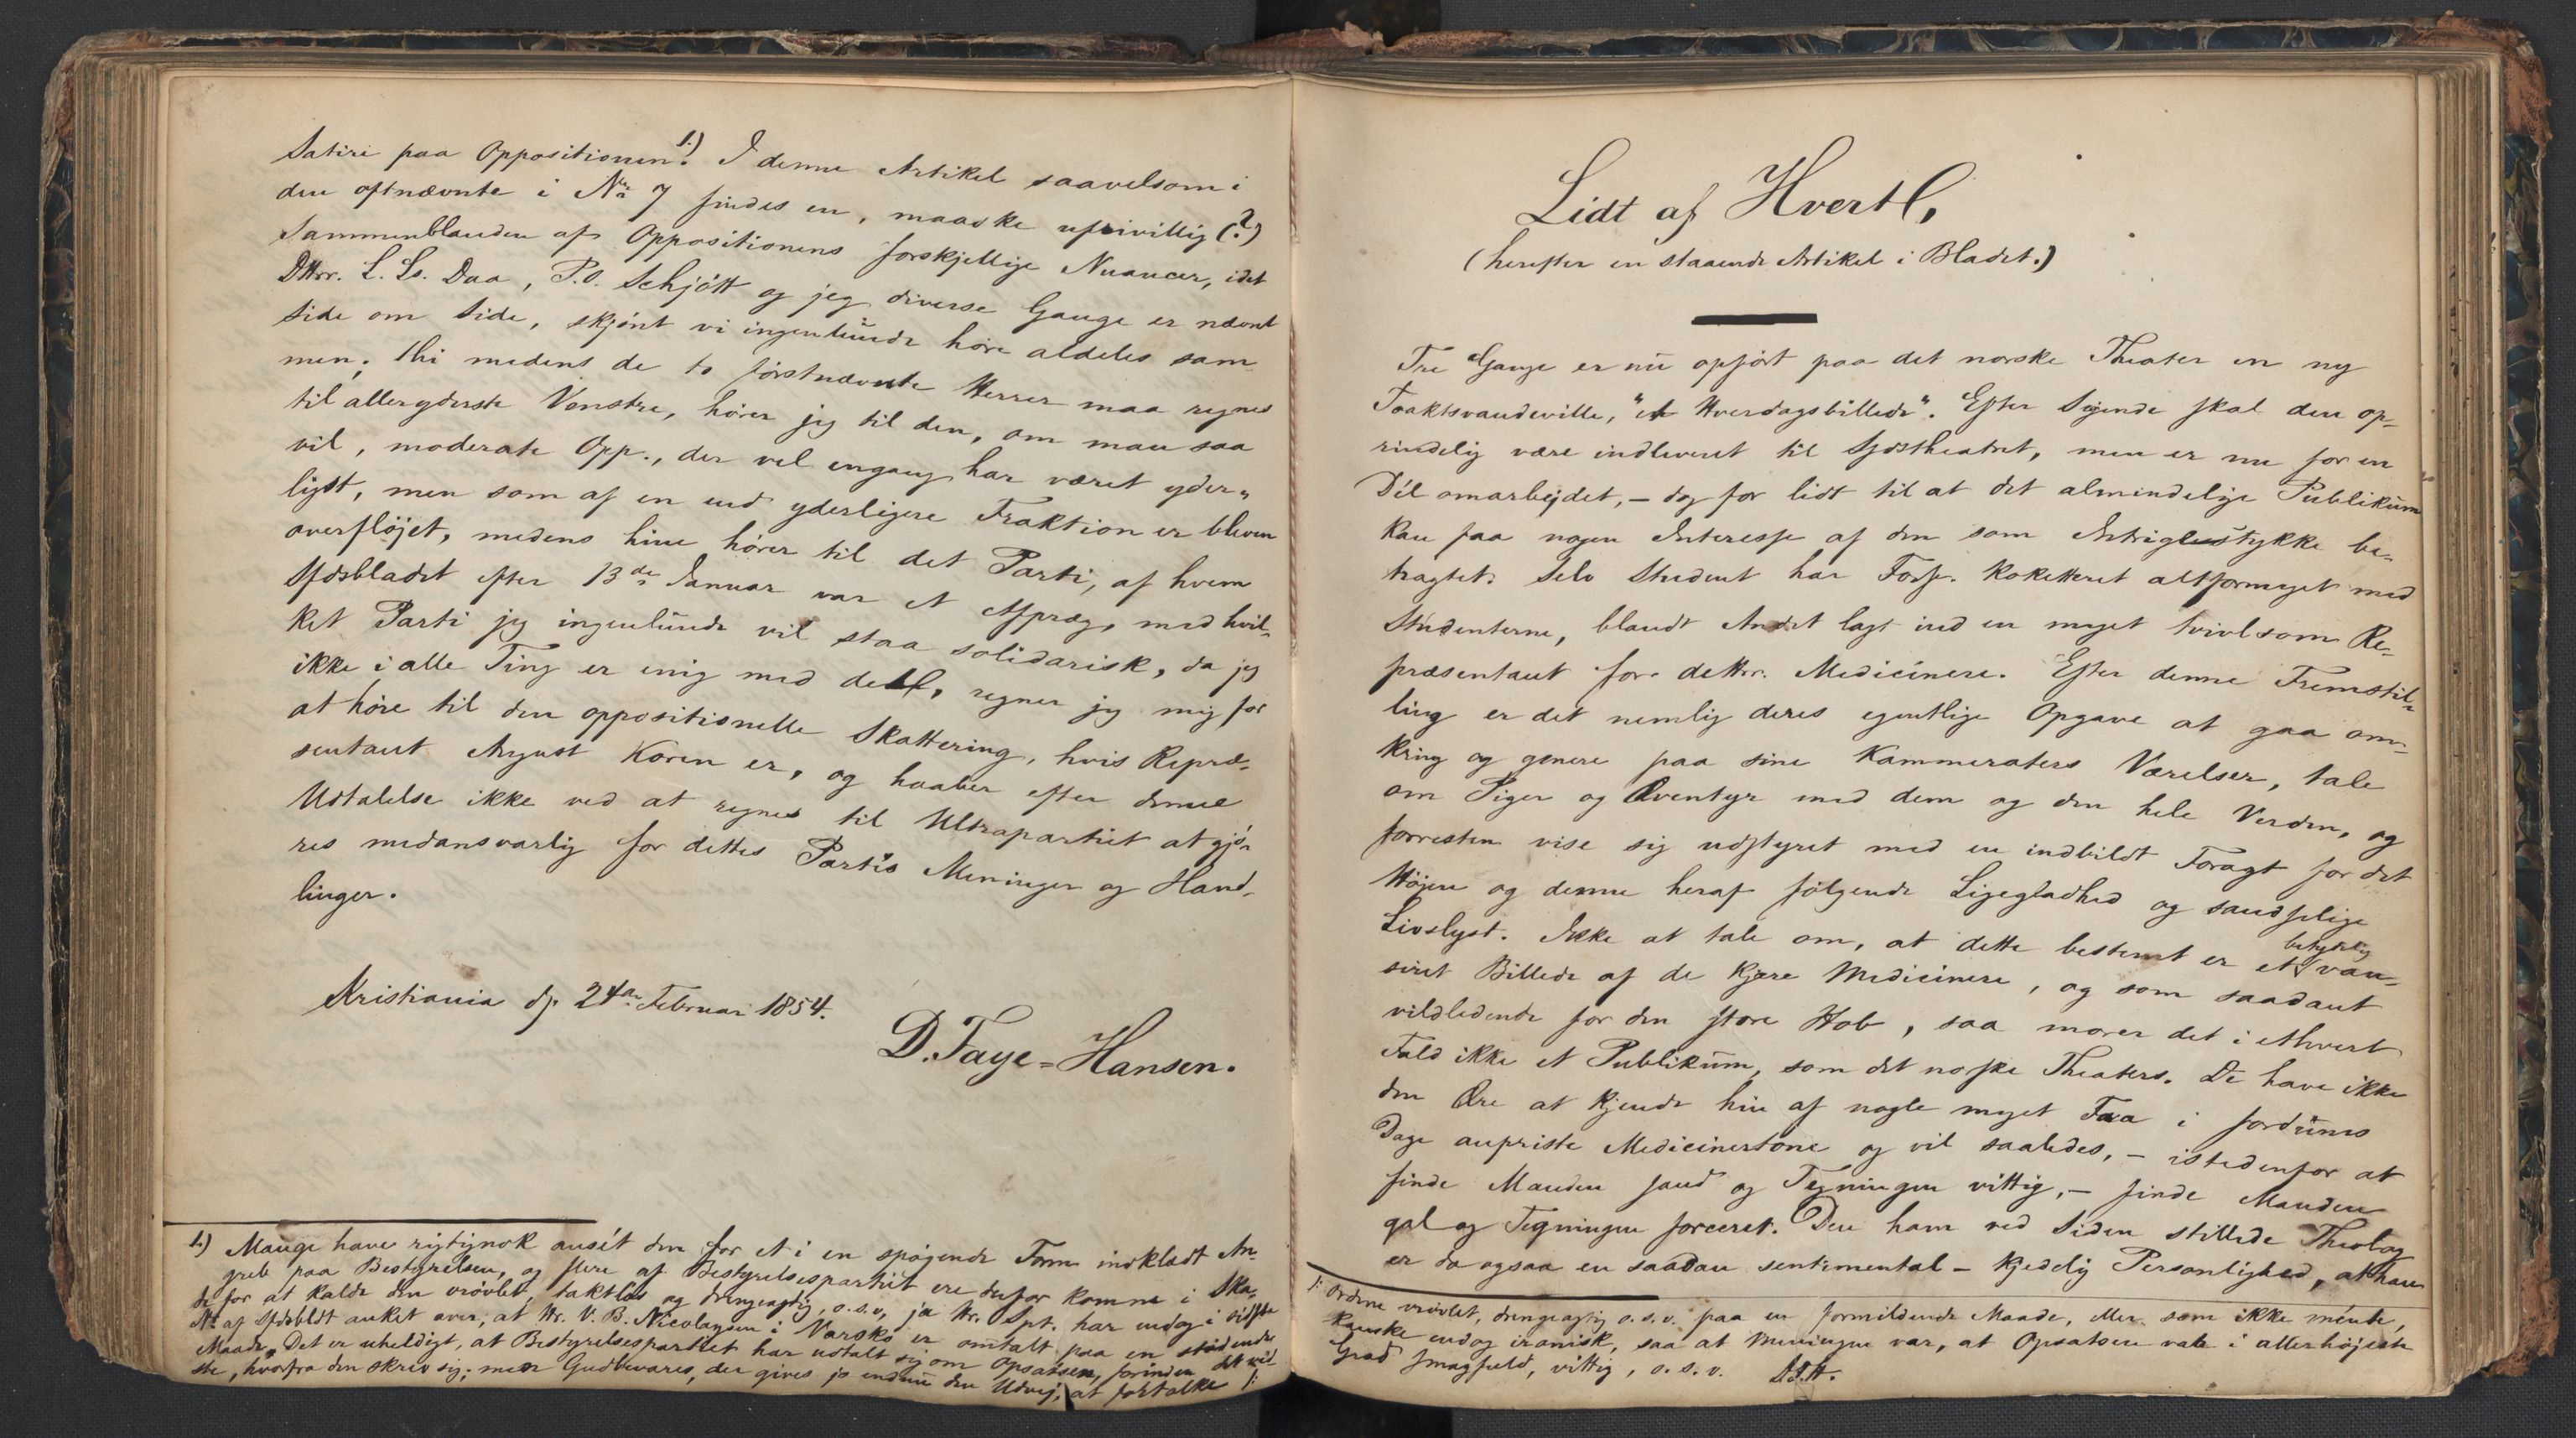 Satire paa Oppositionen. 1.) I denne Artikel saavelsom i
den oftnævnte i No 7 findes en, maaske ufrivillig (?)
Sammenblanden af Oppositionens forskjellige Nuancer, idet
DHrr. L. Ls. Daa, P.O. Schjött og jeg diverse Gange er nævnt
Side om Side, skjönt vi ingenlunde höre aldeles sam
men; thi medens de to förstnævnte Herrer maa regnes
til alleryderste Venstre, hörer jeg til den, om man saa
vil, moderate Opp., der vel engang har været yder-
ligst, men som af en end yderligere Fraktion er bleven
overflöjet, medens hine hörer til det Parti, af hvem
Sfdsbladet efter 13de Januar var et Afpræg, med hvil-
ket Parti jeg ingenlunde vil staa solidarisk, da jeg
ikke i alle Ting er enig med det, regner jeg mig for
at höre til den oppositionelle Skattering, hvis Repræ-
sentant August Koren er, og haaber efter denne
Udtalelse ikke ved at regnes til Ultrapartiet at gjö-
res medansvarlig for dettes Partis Meninger og Hand-
linger.
Kristiania d. 24de Februar 1854.
D. Faye=Hansen.
1.) Mange have rigtignok anseet den for et i en spögende Form indklædt An-
greb paa Bestyrelsen, og flere af Bestyrelsespartiet ere derfor komne i Ska-
de for at kalde den vrövlet, taktlös og drengeagtig, o.s.v., ja Hr. Spt. har endog i sidste
No af Sfdsbldt anket over, at Hr. V. B. Nicolaysen i Varsko er omtalt paa en stödende
Maade. Det er uheldigt, at Bestyrelsespartiet har udtalt sig om Opsatsen, forinden det vid-
ste, hvorfra den skrev sig; men Gudbevares, der gives jo endnu den Udvej, at fortolke /:
Lidt af Hvert,
(herefter en staaende Artikel i Bladet.)
Tre Gange er nu opfört paa det norske Theater en ny
Toaktsvaudeville, "et Hverdagsbillede". Efter Sigende skal den op-
rindelig være indleveret til Sfdstheatret, men er nu for en
Del omarbejdet, – dog for lidt til at det almindelige Publikum
kan faa nogen Interesse af den som Intriguestykke be-
tragtet. Selv Student har Forf. koketteret altformeget med
Studenterne, blandt Andet lagt ind en meget tvivlsom Re-
præsentant for dettr. Medicinere. Efter denne Fremstil-
ling er det nemlig deres egentlige Opgave at gaa om-
kring og genere paa sine Kammeraters Værelser, tale
om Piger og Eventyr med dem og den hele Verden, og
forresten vise sig udstyret med en indbildt Foragt for det
Höjere og denne heraf fölgende Ligegladhed og sandselige
Livslyst. Ikke at tale om, at dette bestemt er et betydelig van-
siret Billede af de kjære Medicinere, og som saadant
vildledende for den store Hob, saa morer det i ethvert
Fald ikke et Publikum, som det norske Theaters. De have ikke
den Ære at kjende hin af nogle meget Faa i fordums
Dage anpriste Medicinertone og vil saaledes, – istedenfor at
finde Manden sand og Tegningen vittig, – finde Manden
gal og Tegningen forceret. Den ham ved Siden stillede Theolog
er da ogsaa en saadan sentimental – kjedelig Personlighed, at han
/: Ordene vrövlet, drengeagtig o.s.v. paa en formildende Maade, eller som ikke ménte,
kanske endog ironisk, saa at Meningen var, at Opsatsen var i allerhöjeste
Grad smagfuld, vittig, o.s.v.